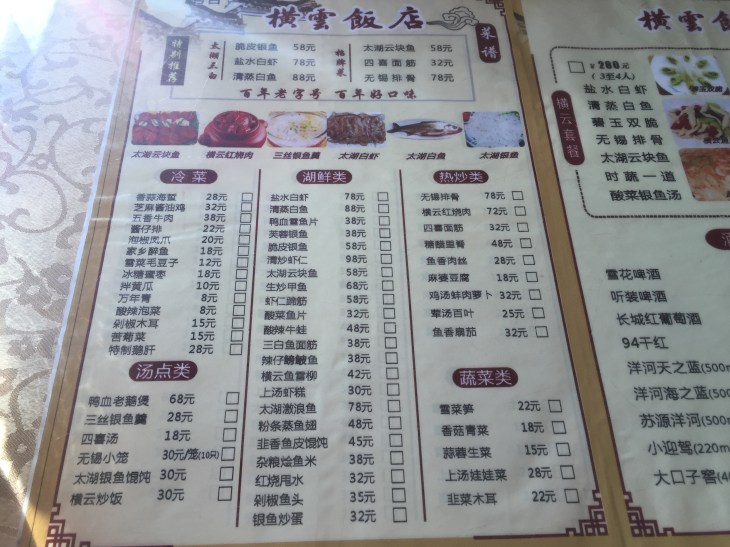 橫雲飯店
特别推荐
太湖三白
脆皮银鱼 58元
盐水白虾 78元
清蒸白鱼 88元
招牌菜
太湖云块鱼 58元
四喜面筋 32元
无锡排骨 78元
菜谱
百年老字号 百年好口味
太湖云块鱼 横云红烧肉 三丝银鱼羹 太湖白虾 太湖白鱼 太湖银鱼
冷菜
香蒜海蜇 28元
芝麻酱油鸡 32元
五香牛肉 38元
酱仔排 22元
泡椒凤爪 20元
家乡醉鱼 18元
雪菜毛豆子 12元
冰糖蜜枣 18元
拌黄瓜 10元
万年青 8元
酸辣泡菜 8元
剁椒木耳 15元
苦菊菜 15元
特制鹅肝 28元
汤点类
鸭血老鹅煲 68元
三丝银鱼羹 28元
四喜汤 18元
无锡小笼 30元/笼(10只)
太湖银鱼馄饨 30元
横云炒饭 30元
湖鲜类
盐水白虾 78元
清蒸白鱼 88元
鸭血雪鱼片 38元
芙蓉银鱼 38元
脆皮银鱼 58元
清炒虾仁 98元
太湖云块鱼 58元
生炒甲鱼 68元
虾仁蹄筋 58元
酸菜鱼片 32元
酸辣牛蛙 48元
三白鱼面筋 38元
辣仔鳑鲏鱼 38元
横云鱼雪柳 42元
上汤虾糕 30元
太湖激浪鱼 78元
粉条蒸鱼翅 48元
韭香鱼皮馄饨 45元
杂粮烩鱼米 38元
红烧甩水 32元
剁椒鱼头 35元
银鱼炒蛋 32元
热炒类
无锡排骨 78元
横云红烧肉 72元
四喜面筋 32元
糖醋里脊 48元
鱼香肉丝 28元
麻婆豆腐 18元
鸡汤蚌肉萝卜 32元
荤汤百叶 25元
鱼香腐茄 32元
蔬菜类
雪菜笋 22元
香菇青菜 18元
蒜蓉生菜 15元
上汤娃娃菜 28元
韭菜木耳 22元
橫雲飯
横云套餐
¥280元
(3至4人)
盐水白虾
清蒸白鱼
碧玉双脆
无锡排骨
太湖云块鱼
时蔬一道
酸菜银鱼汤
雪花啤酒
听装啤酒
长城红葡萄酒
94干红
洋河天之蓝(500m
洋河海之蓝(500m
苏源洋河(500m
小迎驾(220m
大口子窖(40